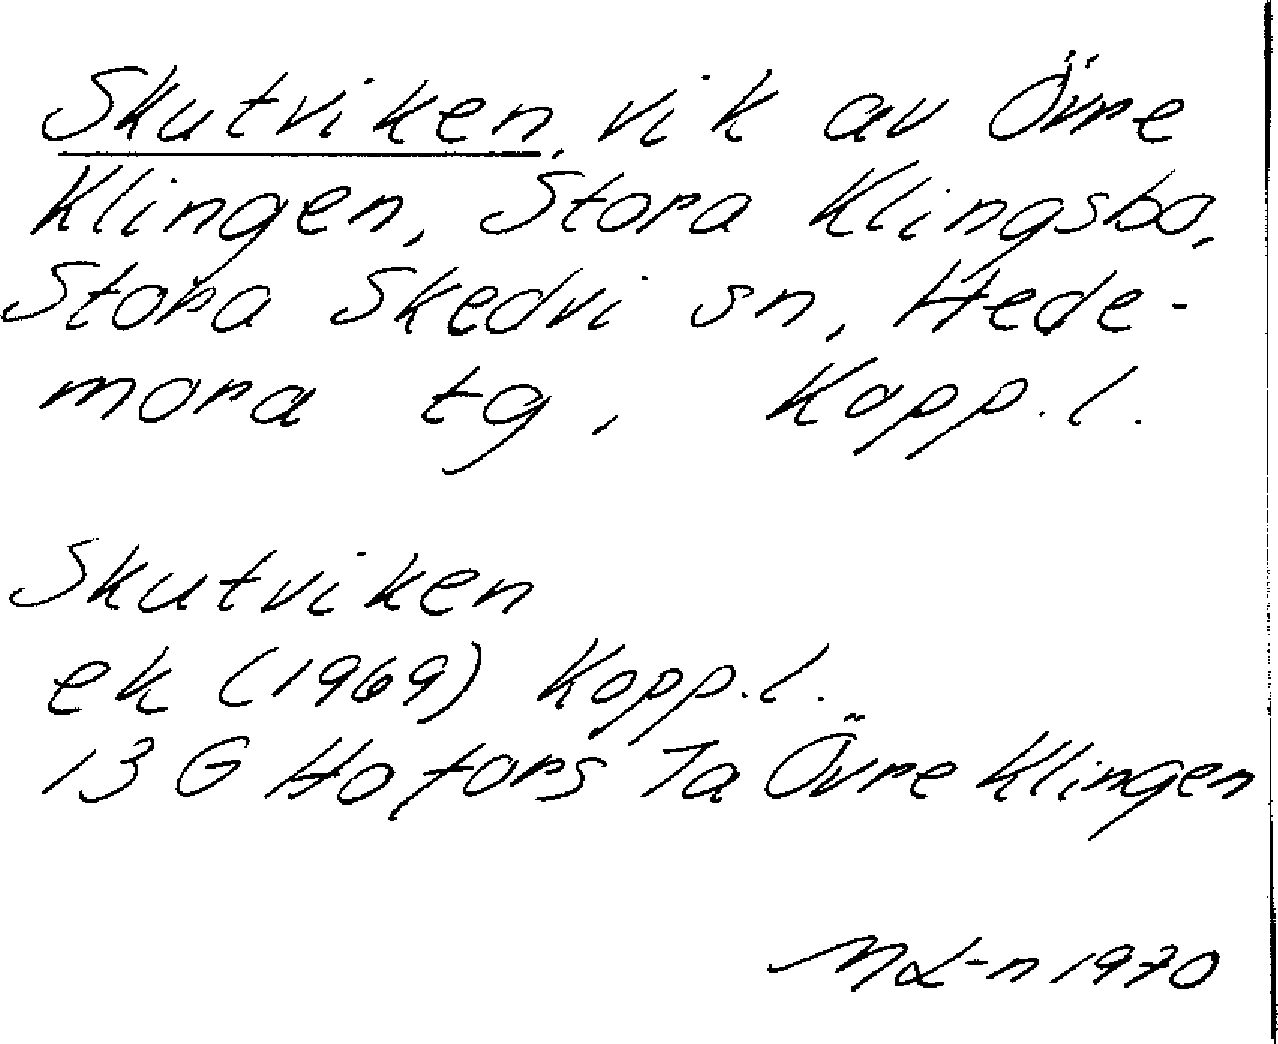 Skutviken, vik av Övre
Klingen, Stora Klingsbo,
Stora Skedvi sn, Hede-
mora tg, Kopp.l.
Skutviken
ek (1969) Kopp.l.
13 G Hofors 7a Övre Klingen
1970